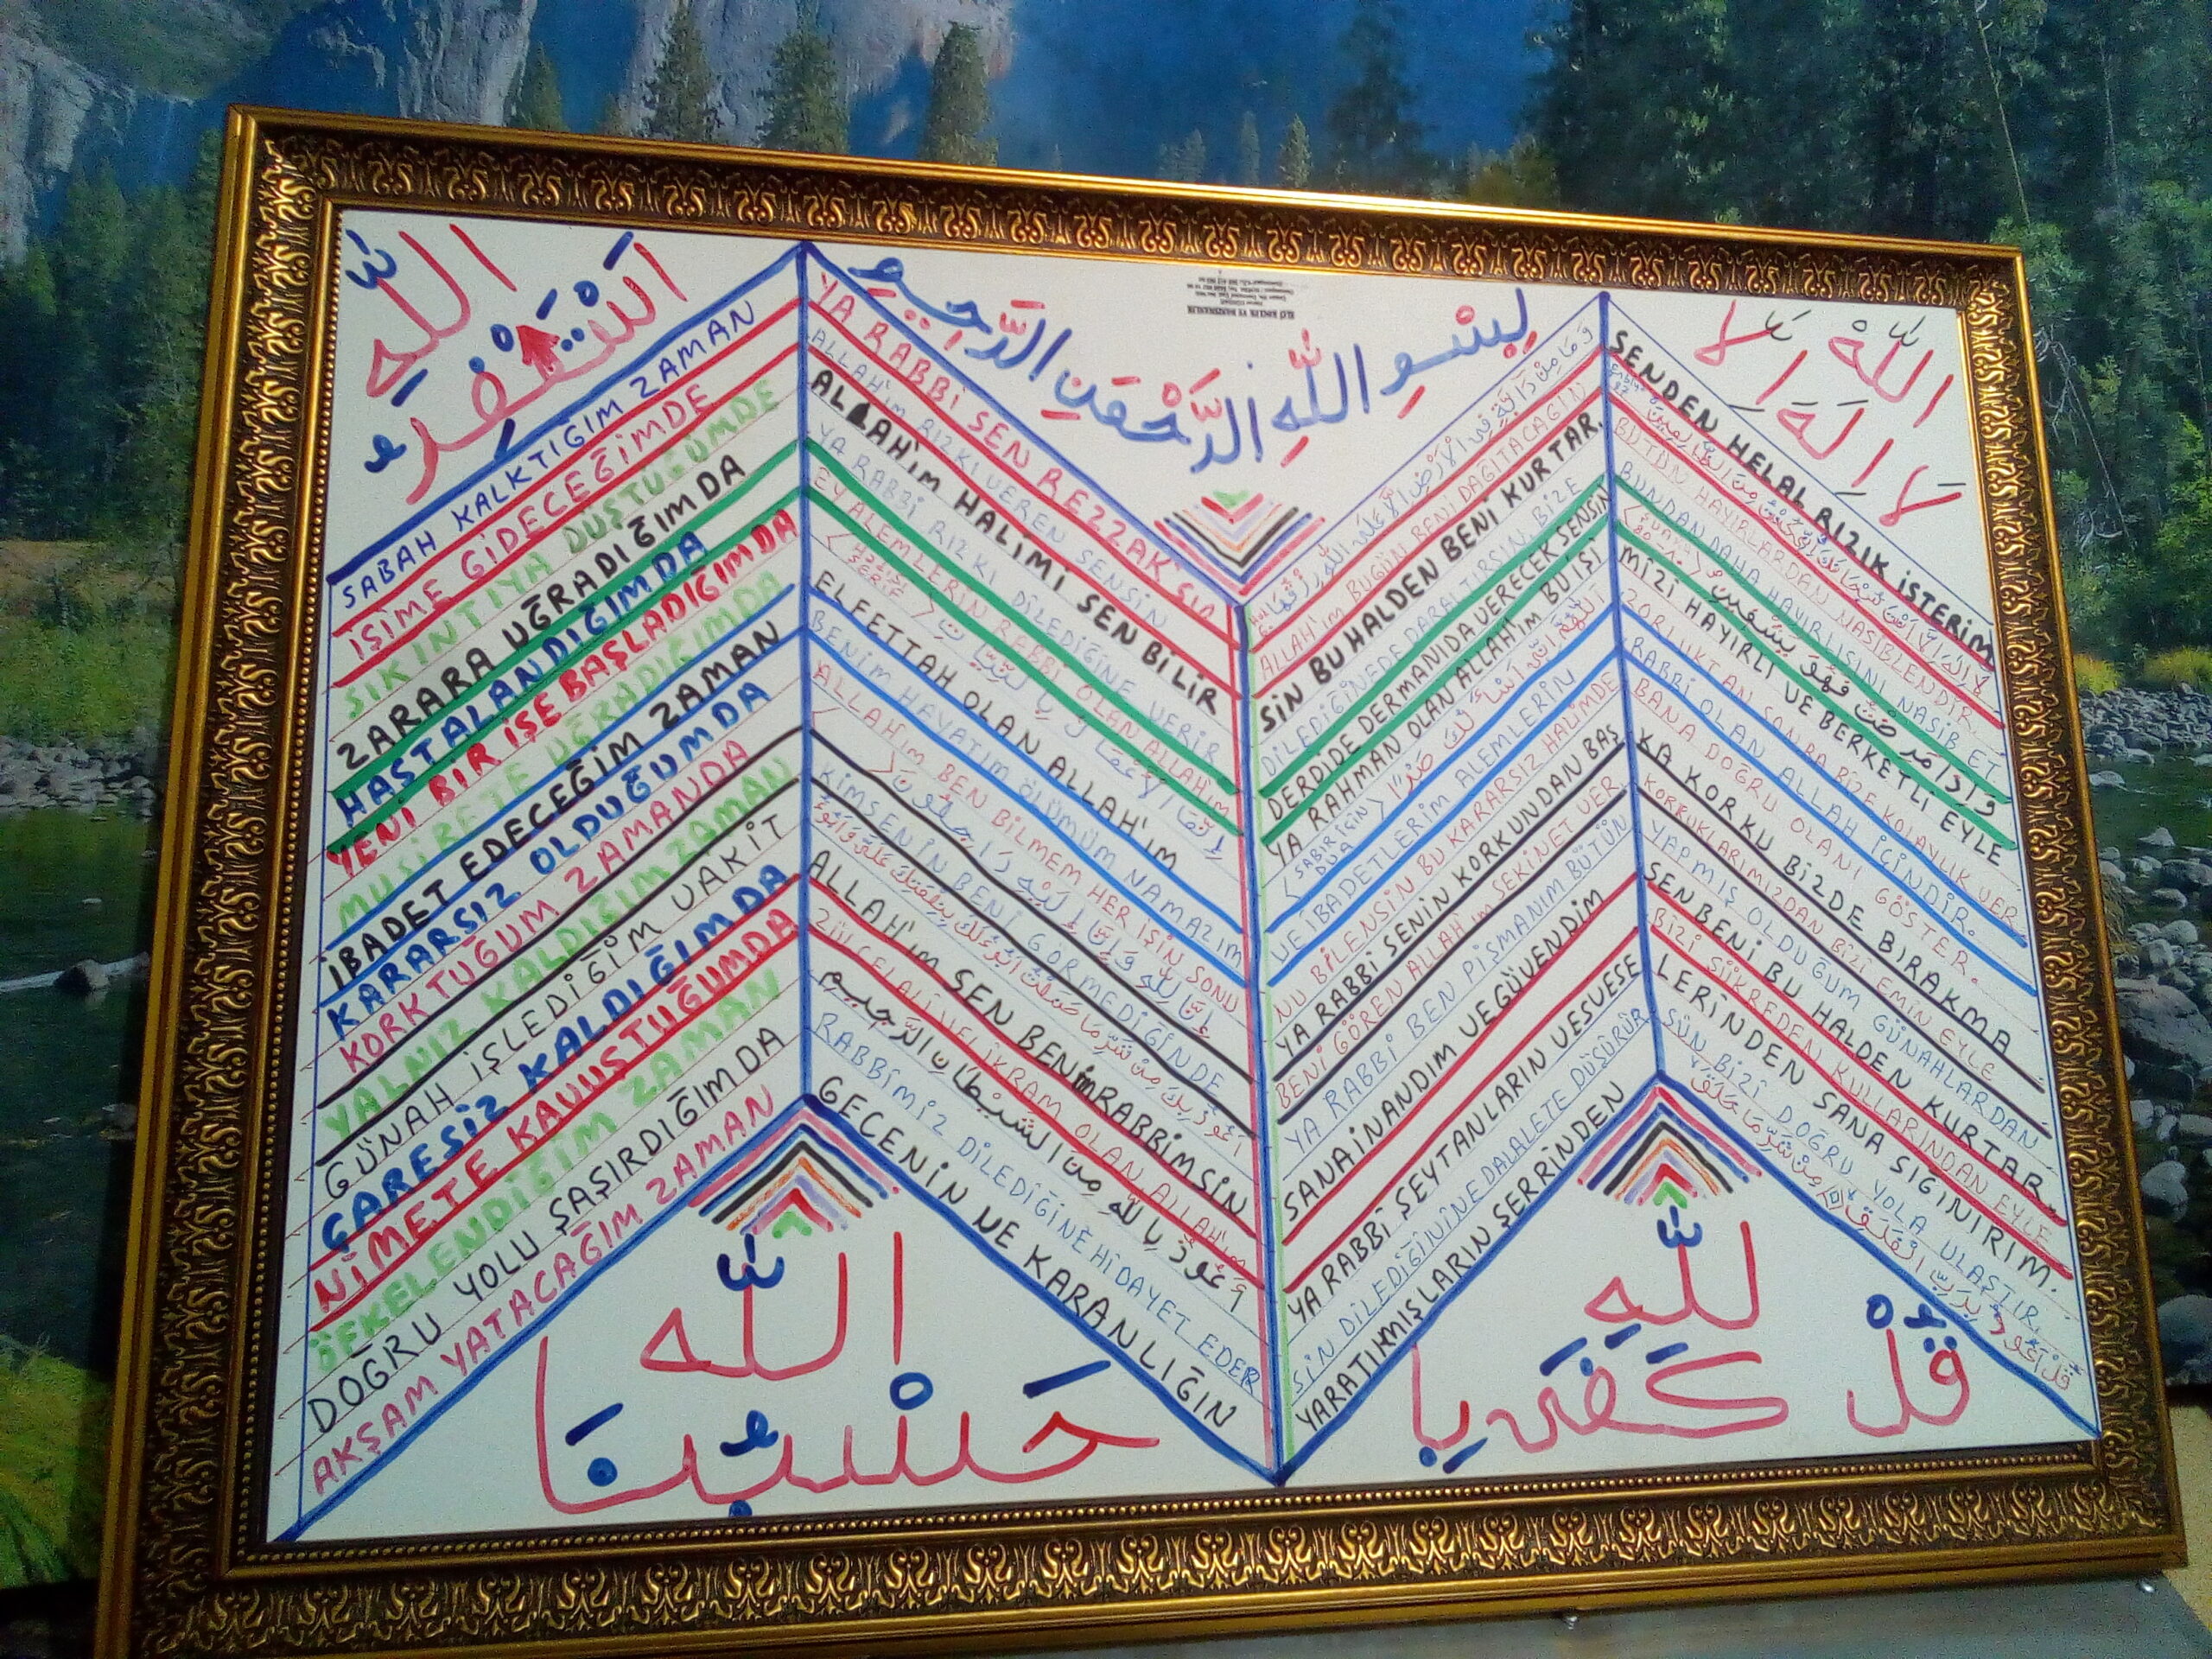 اَسْتَغْفِرُ اللّٰهِ
بِسْمِ اللّٰهِ الرَّحْمٰنِ الرَّحِيمِ
لَا اِلٰهَ اِلَّا اللّٰهُ
SABAH KALKTIĞIM ZAMAN YA RABBİ SEN REZZAK'SIN وَمَا مِنْ دَابَّةٍ فِي الْاَرْضِ اِلَّا عَلَى اللّٰهِ رِزْقُهَا SENDEN HELAL RIZIK İSTERİM
İŞİME GİDECEĞİMDE ALLAH'IM RIZKI VEREN SENSİN ALLAH'IM BUGÜNÜ BENİ DAĞITACAĞIN BÜTÜN HAYIRLARDAN NASİBLENDİR
SIKINTIYA DÜŞTÜĞÜMDE ALLAH'IM HALİMİ SEN BİLİR SİN BU HALDEN BENİ KURTAR. لَا اِلٰهَ اِلَّا اَنْتَ سُبْحَانَكَ اِنِّي كُنْتُ مِنَ الظَّالِمِينَ
ZARARA UĞRADIĞIMDA YA RABBİ RIZKI DİLEDİĞİNE VERİR DİLEDİĞİNEDE DARALTIRSIN BİZE BUNDAN DAHA HAYIRLISINI NASİB ET.
HASTALANDIĞIMDA EY ALEMLERİN RABBİ OLAN ALLAH'IM DERDİDE DERMANIDA VERECEK SENSİN وَاِذَا مَرِضْتُ فَهُوَ يَشْفِينِ
YENİ BİR İŞE BAŞLADIĞIMDA HADİSİ ŞERİF اِنَّمَا الْاَعْمَالُ بِالنِّيَّاتِ YA RAHMAN OLAN ALLAH'IM BU İŞİ MİZİ HAYIRLI VE BERKETLİ EYLE
MUSİBETE UĞRADIĞIMDA ELFETTAH OLAN ALLAH'IM SABIR İÇİN DUA ZORLUKTAN SONRA BİZE KOLAYLIK VER
İBADET EDECEĞİM ZAMAN BENİM HAYATIM ÖLÜMÜM NAMAZIM VE İBADETLERİM ALEMLERİN RABBİ OLAN ALLAH İÇİNDİR.
KARARSIZ OLDUĞUMDA ALLAH'IM BEN BİLMEM HER İŞİN SONU NU BİLENSİN BU KARARSIZ HALİMDE BANA DOĞRU OLANI GÖSTER.
KORKTUĞUM ZAMANDA اِنَّا لِلّٰهِ وَاِنَّا اِلَيْهِ رَاجِعُونَ YA RABBİ SENİN KORKUNDAN BAŞ KA KORKU BİZDE BIRAKMA
YALNIZ KALDIĞIM ZAMAN KİMSENİN BENİ GÖRMEDİĞİNDE BENİ GÖREN ALLAH'IM SEKİNET VER. KORKUKLARIMIZDAN BİZİ EMİN EYLE
GÜNAH İŞLEDİĞİM VAKİT YA RABBİ BEN PİŞMANIM BÜTÜN YAPMIŞ OLDUĞUM GÜNAHLARDAN
ÇARESİZ KALDIĞIMDA ALLAH'IM SEN BENİM RABBİMSİN SANA İNANDIM VE GÜVENDİM SEN BENİ BU HALDEN KURTAR.
NİMETE KAVUŞTUĞUMDA ZÜLCELALİ VEL İKRAM OLAN ALLAH'IM BİZİ ŞÜKREDEN KULLARINDAN EYLE
ÖFKELENDİĞİM ZAMAN اَعُوذُ بِاللّٰهِ مِنَ الشَّيْطَانِ الرَّجِيمِ YA RABBİ ŞEYTANLARIN VESVESE LERİNDEN SANA SIĞINIRIM.
DOĞRU YOLU ŞAŞIRDIĞIMDA RABBİMİZ DİLEDİĞİNE HİDAYET EDER SİN DİLEDİĞİNİNE DALALETE DÜŞÜRÜR SÜN BİZİ DOĞRU YOLA ULAŞTIR.
AKŞAM YATACAĞIM ZAMAN GECENİN VE KARANLIĞIN YARATIKMIŞLARIN ŞERRİNDEN قُلْ اَعُوذُ بِرَبِّ الْفَلَقِ مِنْ شَرِّ مَا خَلَقَ
حَسْبُنَا اللّٰه
قُلْ كَفٰى بِاللّٰهِ